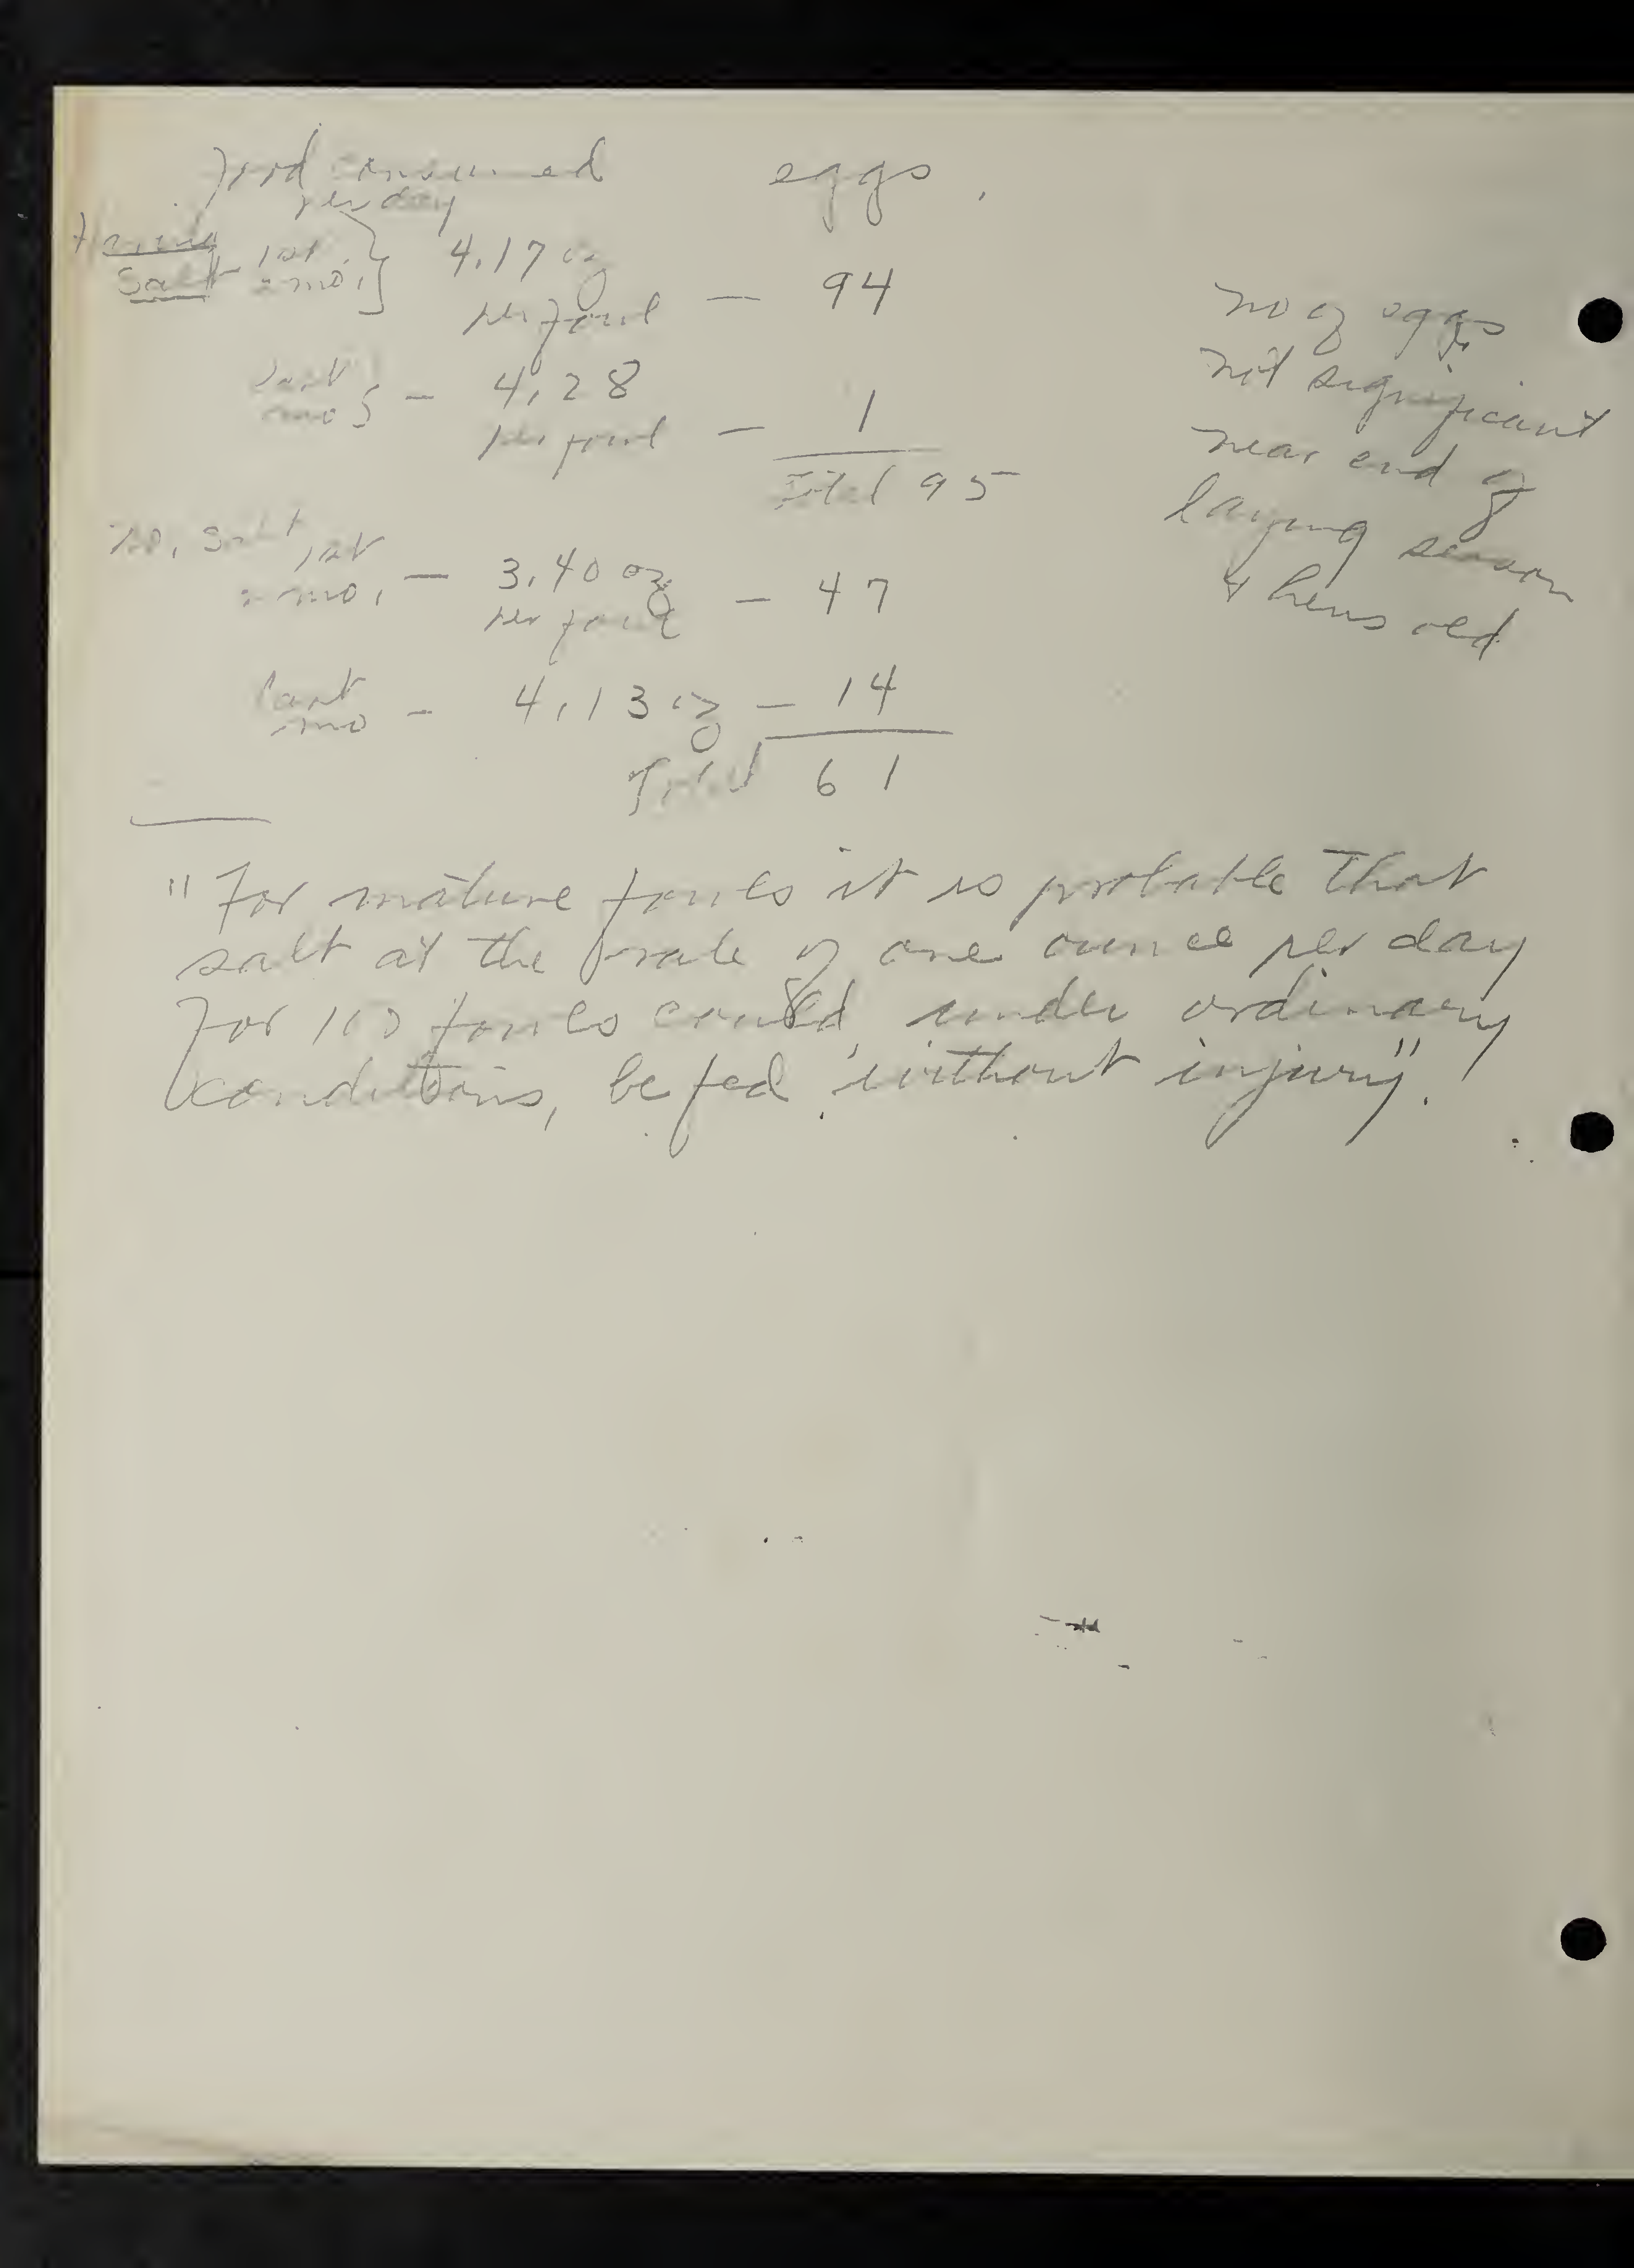 food consumed eggs.
per day
Having
Salt 1st 2 mo. } 4.17 oz
per fowl — 94
last mo } — 4.28
per fowl — 1
Total 95
No. Salt 1st
2 mo. — 3.40 oz
per fowl — 47
last
mo — 4.13 oz — 14
Total 61
no of eggs
not significant
near end of
laying season
& hens old
"For mature fowls it is probable that
salt at the rate of one ounce per day
for 100 fowls could, under ordinary
conditions, be fed without injury".